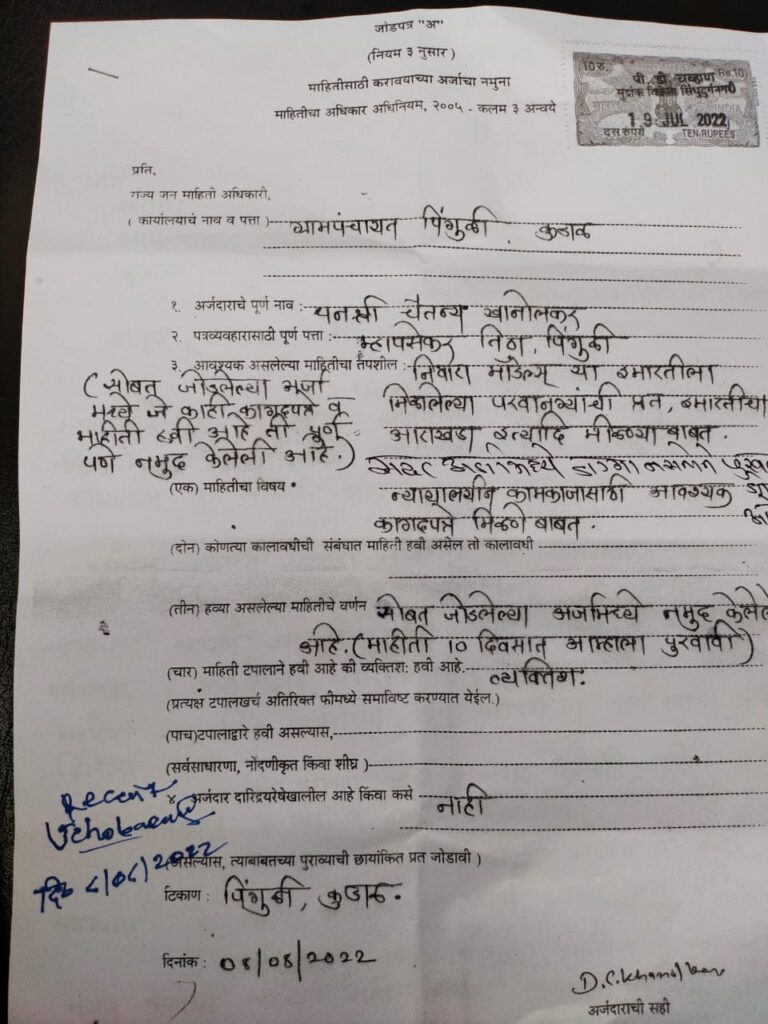 जोडपत्र "अ"
(नियम ३ नुसार )
माहितीसाठी करावयाच्या अर्जाचा नमुना
माहितीचा अधिकार अधिनियम, २००५ - कलम ३ अन्वये
10 रु. Rs.10
पी. डी. चव्हाण
मुद्रांक विक्रेता सिंधुदुर्गनगरी
INDIA
19 JUL 2022
दस रुपये TEN RUPEES
प्रति,
राज्य जन माहिती अधिकारी,
( कार्यालयाचे नाव व पत्ता ) ग्रामपंचायत पिंगुळी, कुडाळ
१. अर्जदाराचे पूर्ण नाव : धनश्री चैतन्य खानोलकर
२. पत्रव्यवहारासाठी पूर्ण पत्ता : म्हापसेकर तिठा, पिंगुळी
३. आवश्यक असलेल्या माहितीचा तपशील : निवारा मॉडेल्स या इमारतीला
( सोबत जोडलेल्या अर्जा मिळालेल्या परवानग्यांची प्रत, इमारतीचा
मध्ये जे काही कागदपत्रे व आराखडा इत्यादि मीळण्या बाबत.
माहीती हवी आहे ती पूर्ण
पणे नमुद केलेली आहे.)
(एक) माहितीचा विषय न्यायालयीन कामकाजासाठी आवश्यक
कागदपत्रे मिळणे बाबत.
(दोन) कोणत्या कालावधीची संबंधात माहिती हवी असेल तो कालावधी
(तीन) हव्या असलेल्या माहितीचे वर्णन सोबत जोडलेल्या अर्जामध्ये नमुद केलेले
आहे. (माहीती 10 दिवसात आम्हाला पुरवावी)
(चार) माहिती टपालाने हवी आहे की व्यक्तिश: हवी आहे. व्यक्तिश:
(प्रत्यक्ष टपालखर्च अतिरिक्त फीमध्ये समाविष्ट करण्यात येईल.)
(पाच)टपालाद्वारे हवी असल्यास,
(सर्वसाधारणा, नोंदणीकृत किंवा शीघ्र )
४. अर्जदार दारिद्रयरेषेखालील आहे किंवा कसे नाही
(असल्यास, त्याबाबतच्या पुराव्याची छायांकित प्रत जोडावी )
दि ८/०८/२०२२
टिकाण : पिंगुळी, कुडाळ.
दिनांक : 08/08/2022
D.C.Khanolkar
अर्जदाराची सही